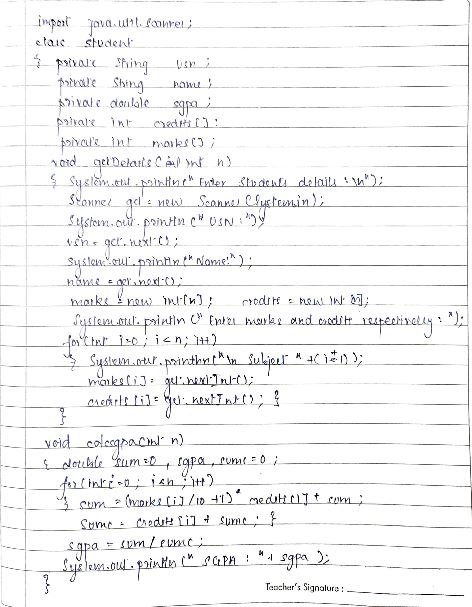 import java.util.Scanner;
class student
{ private String usn ;
private String name ;
private double sgpa ;
private int credits[] :
private int marks[] ;
void getDetails ( int n)
{ System.out.println(" Enter Students details : \n");
Scanner get = new Scanner (System.in);
System.out.println (" USN : ");
usn = get.next() ;
System.out.println (" Name: ");
name = get.next() ;
marks = new int[n] ; credits = new int [n];
System.out.println (" Enter marks and credits respectively : ");
for(int i=0 ; i<n ; i++)
{ System.out.println("\n Subject " + (i+1) );
marks[i] = get.nextInt();
credits[i] = get.nextInt() ; }
}
void calcsgpa(int n)
{ double sum=0 , sgpa, sumc = 0 ;
for(int i=0 ; i<n ; i++)
{ sum = (marks[i]/10 +1)* credits[i] + sum ;
sumc = credits[i] + sumc ; }
sgpa = sum / sumc ;
System.out.println (" SGPA : " + sgpa );
}
Teacher's Signature :